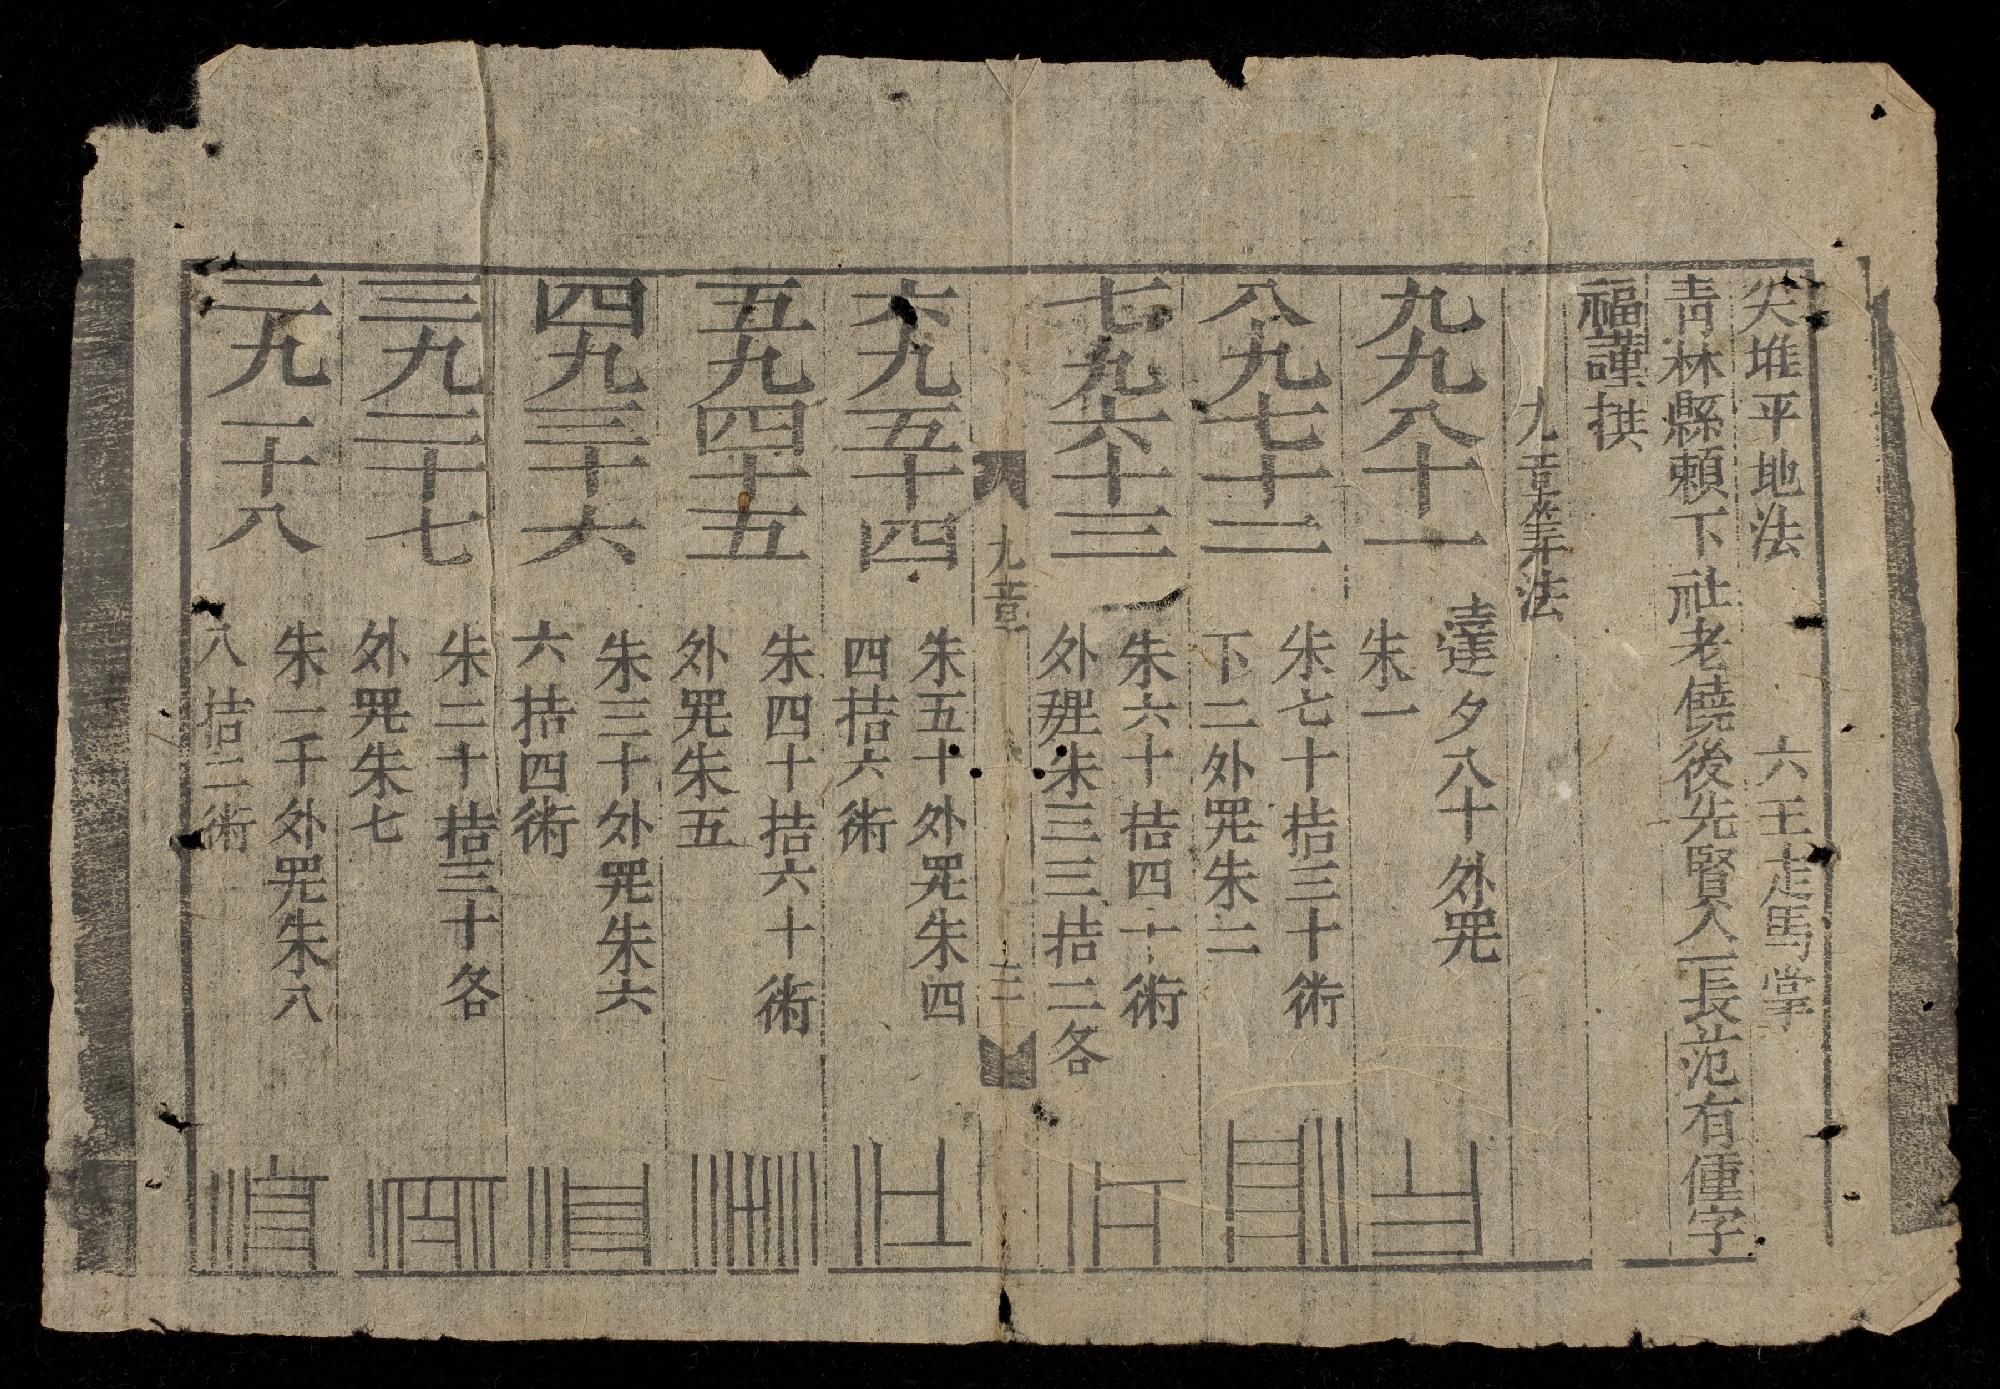 尖堆平地法 六王走馬掌
青林縣頼下社老僥後先賢人長范有偅字
福謹拱
九章筭法
九九八十一
夕八十外咒
朱一
八九七十二
朱七十拮三十術
下二外咒朱二
七九六十三
朱六十拮四十術
外朱三三拮二各
九章
三
六九五十四
朱五十外咒朱四
四拮六術
五九四十五
朱四十拮六十術
外咒朱五
四九三十六
朱三十外咒朱六
六拮四術
三九二十七
朱二十拮三十各
外咒朱七
二九一十八
朱一千外咒朱八
八拮二術